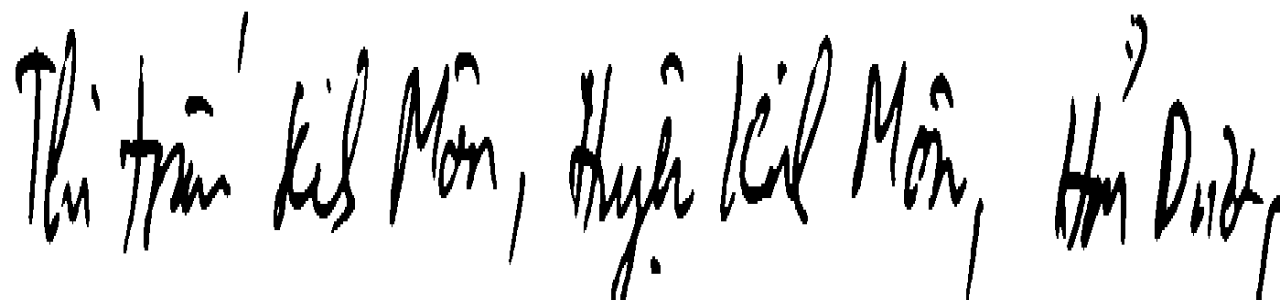 Thị trấn Kinh Môn, Huyện Kinh Môn, Hải Dương